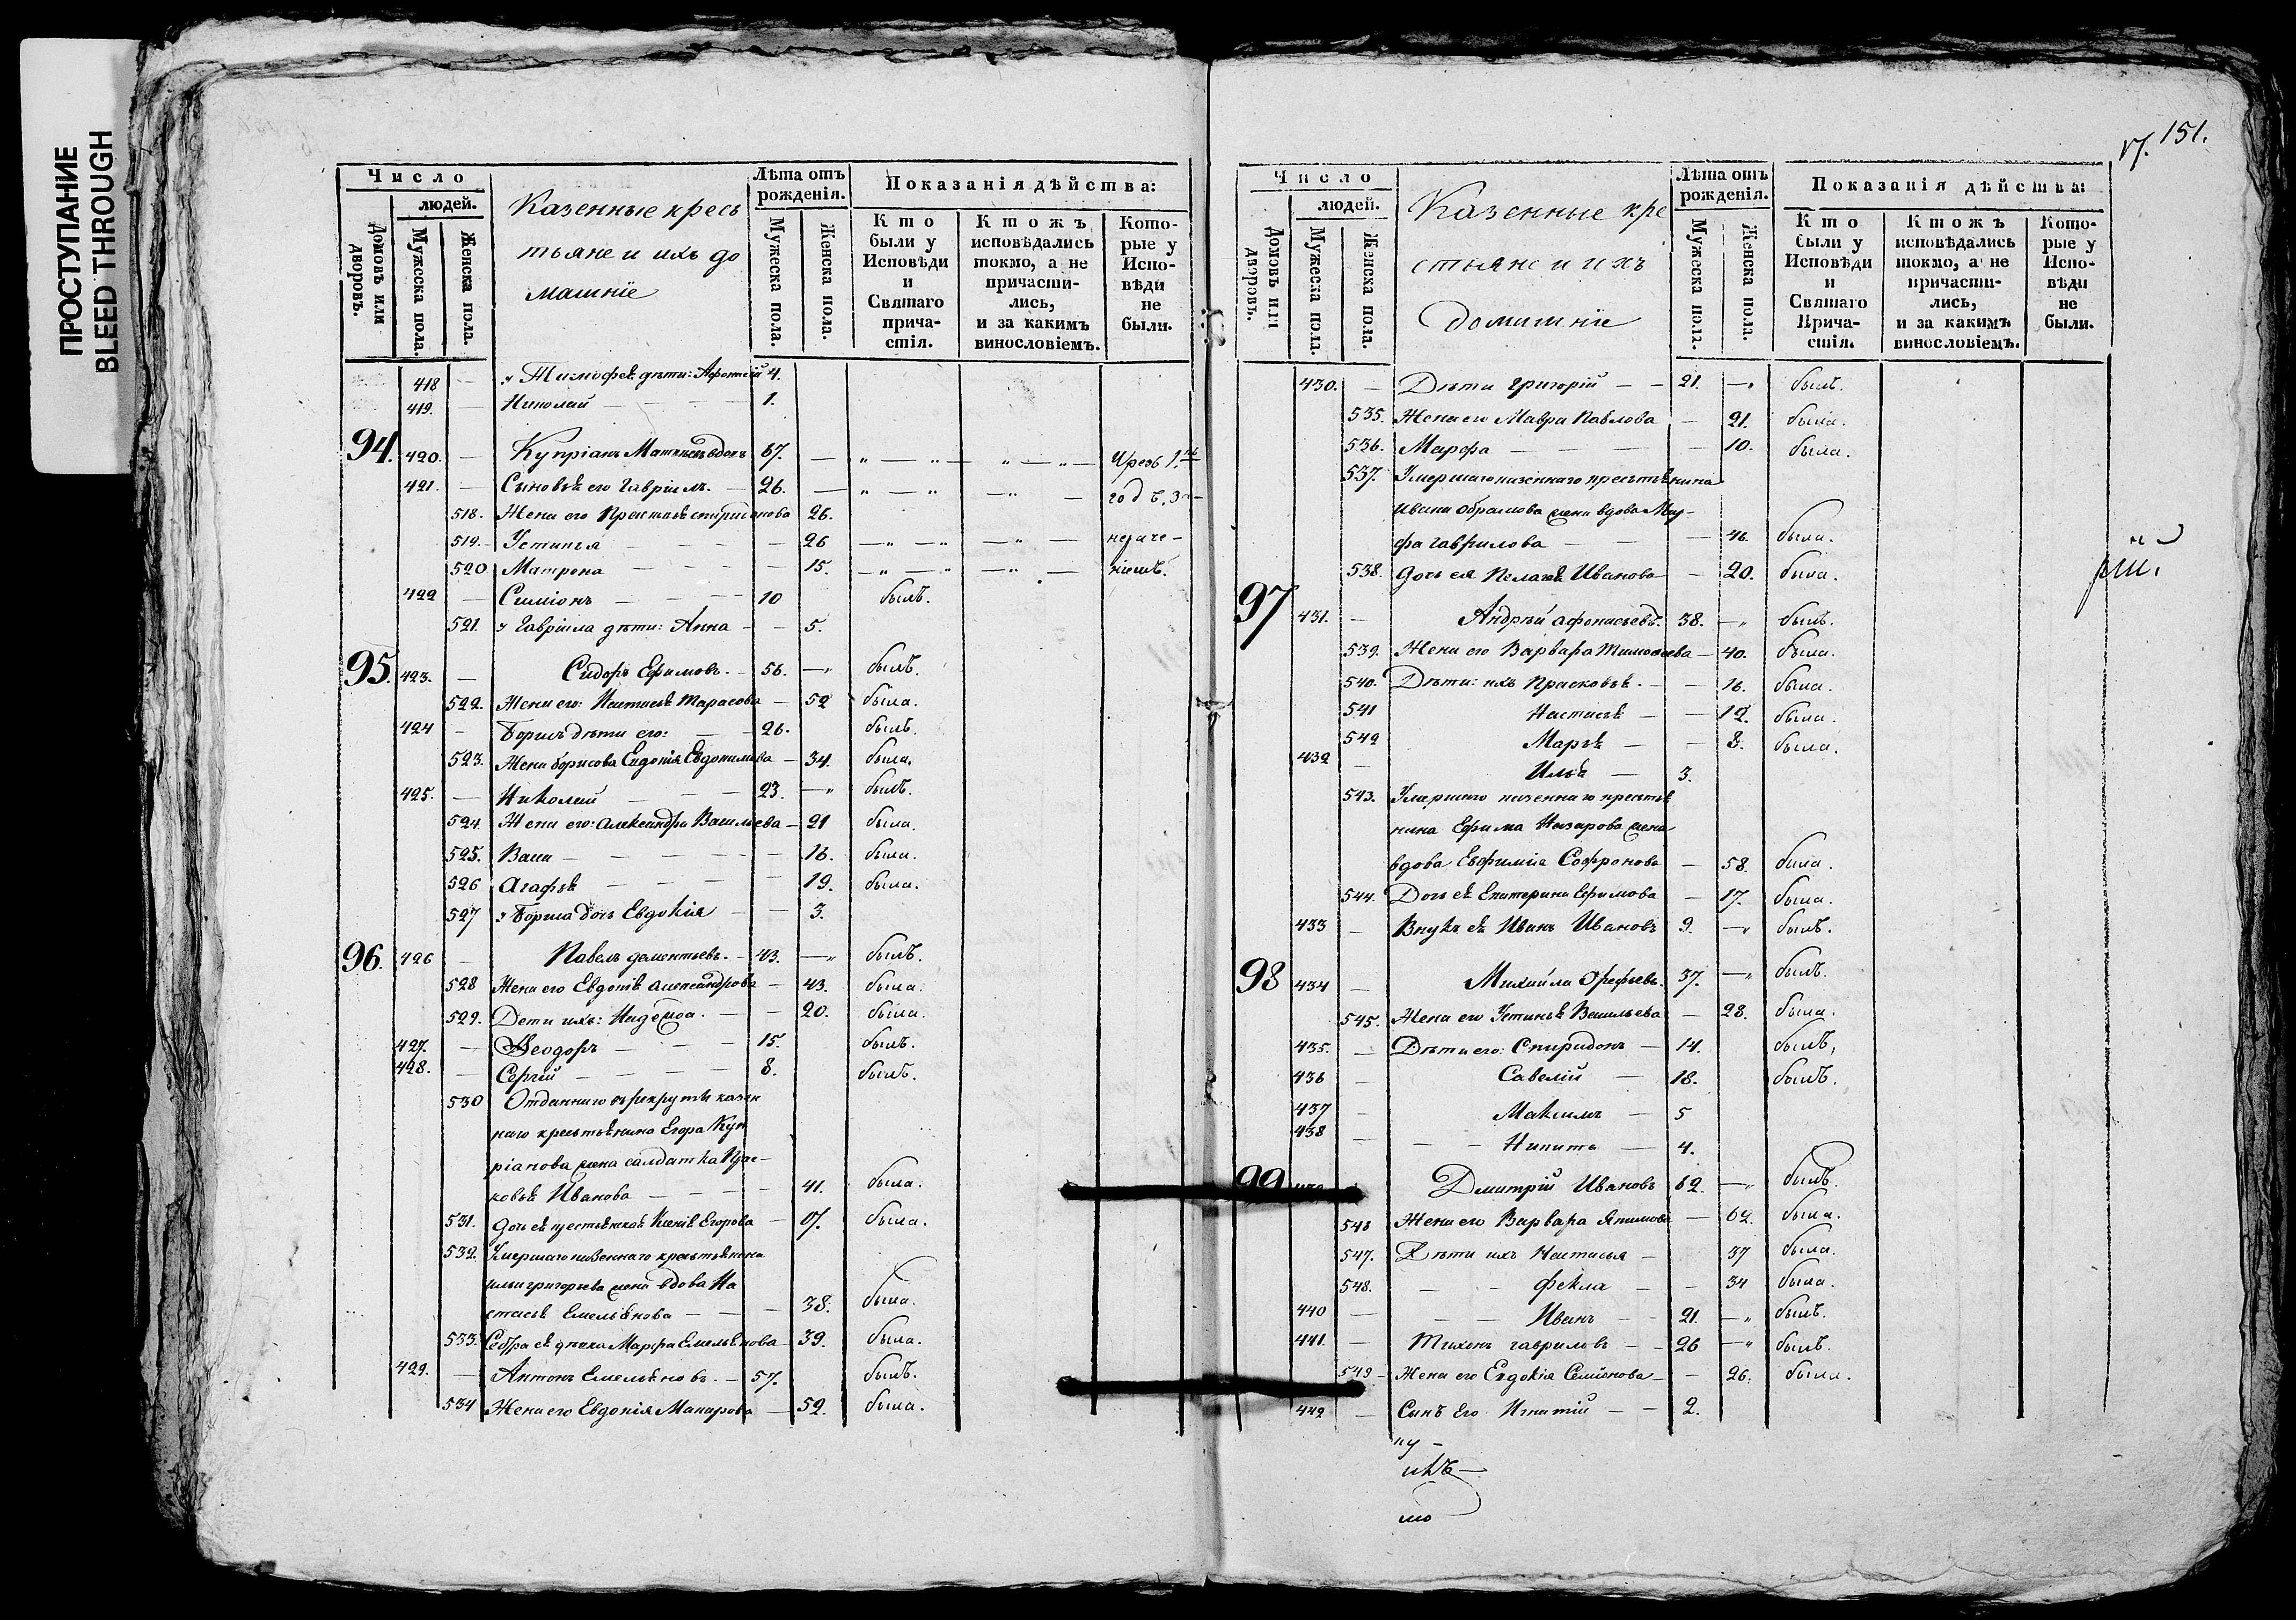 ПРОСТУПАНИЕ
BLEED THROUGH
Число
людей.
Домовъ или дворовъ.
Мужеска пола.
Женска пола.
Казенные кресь
тьяне и ихъ до
машніе
Лѣта отъ рожденія.
Мужеска пола.
Женска пола.
Показанія дѣйства:
Кто были у Исповѣди и Святаго причастія.
Ктожъ исповѣдались токмо, а не причастились, и за какимъ винословіемъ.
Которые у Исповѣди не были.
418 — Тимофея дѣти: 4.
419. — Николай — 1.
94. 420. — Купріанъ 67. — Чрезъ 1.
421. — Сыновья его Гавріилъ. — 26. — годъ
518. Жена его 26.
519. Устинья — 26
520 Матрона — 15.
422 — Симіонъ — 10 былъ.
521. Гавріила дѣти: Анна — 5.
95. 423. — Сидоръ Ефимовъ. — 56. — былъ.
522. Жена его: Настасья Тарасова — 52 была.
424 — Борисъ дѣти его: — 26. былъ.
523. Жена борисова Евдокія Евдокимова — 34. была.
425. — Николай — 23. — былъ.
524. Жена его: Александра Васильева — 21 была.
525. Васа — 16. была.
526 Агафья — 19. была.
527 Бориса дочь Евдокія — 3.
96. 426 — Павелъ дементьевъ. — 43. — былъ.
528 Жена его Евдокія александрова — 43. была.
529. Дети ихъ: — 20. была.
427. — Ѳеодоръ — 15. былъ.
428. — Сергій — 8. былъ.
530 Отданнаго въ рекруты казен
наго крестьянина Егора Куп
ріанова жена салдатка Прас-
ковья Иванова — 41. была.
531. дочь ея Ксенія Егорова — 17. была.
532. Умершаго казеннаго крестьянина
ильи григорьева жена вдова На
стасья Емельянова — 38. была.
533. Сестра ея дѣвка Марфа Емельянова — 39. была.
429. — Антонъ Емельяновъ. — 57. былъ.
534 Жена его Евдокія Макарова — 52. была.
151.
Число
людей.
Домовъ или дворовъ.
Мужеска пола.
Женска пола.
Казенные кре
стьяне и ихъ
домашніе
Лѣта отъ рожденія.
Мужеска пола.
Женска пола.
Показанія дѣйства:
Кто были у Исповѣди и Святаго Причастія.
Ктожъ исповѣдались токмо, а не причастились, и за какимъ винословіемъ.
Которые у Исповѣди не были.
430. — Дѣти григорій — 21. — былъ.
535. Жена его Мавра Павлова — 21. была.
536. Марфа — 10. была.
537. Умершаго казеннаго крестьянина
ивана обрамова жена вдова Мар-
фа гаврилова — 46. была.
538. дочь ея Пелагѣя Иванова — 20. была.
97 431. — Андрей афонасьевъ. 38. — былъ.
539. Жена его Варвара — 40. была.
540. Дѣти: ихъ Прасковья. — 16. была.
541 Настасья — 12. была.
542 Марья — 8. была.
432 — Илья — 3.
543. Умершаго казеннаго крестья
нина Ефима Назарова жена
вдова Евфимія Софронова — 58. была.
544. Дочь ея Екатерина Ефимова — 17. была.
433 — Внукъ ея Иванъ Ивановъ 9. — былъ.
98 434 — Михайла Орефьевъ. 37. — былъ.
545. Жена его Устинья Васильева — 28. была.
435. — Дѣти его: Спиридонъ — 14. былъ,
436 — Савелій — 18. былъ.
437 — Максимъ — 5
438 — Никита — 4.
99 Дмитрій Ивановъ 62. — былъ.
546 Жена его Варвара Якимова — 62. была.
547. Дѣти ихъ Настасья — 37 была.
548. — Фекла — 34 была.
440 — Иванъ — 21. — былъ.
441. — Тихонъ гавриловъ — 26 — былъ.
549 Жена его Евдокія Семіонова — 26. была.
442 — Сынъ Его Игнатій — 2.